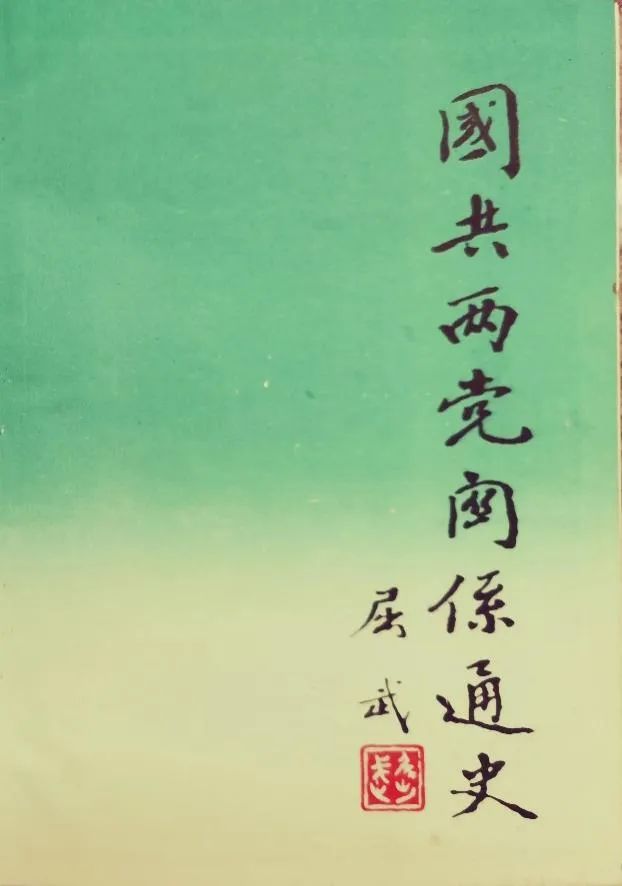 國共两党関係通史
屈武